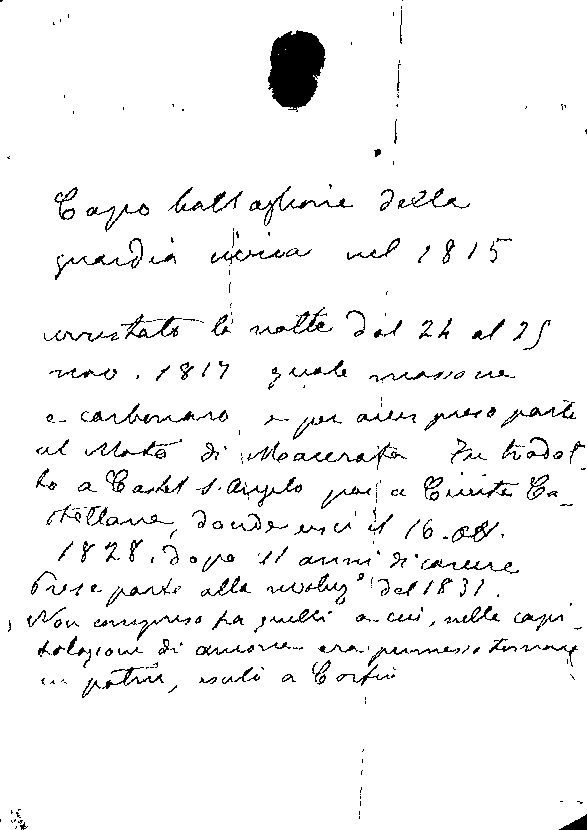 Capo battaglione della
guardia civica nel 1815
arrestato la notte dal 24 al 25
nov. 1817 quale massone
e carbonaro, e per aver preso parte
al Moto di Macerata. Fu tradot-
to a Castel S. Angelo poi a Civita Ca-
stellana, donde uscì il 16. ott.
1828. dopo 11 anni di carcere
Prese parte alla rivoluz° del 1831.
Non compreso fra quelli a cui, nella capi-
tolazione di Ancona era permesso tornare
in patria, esulò a Corfù